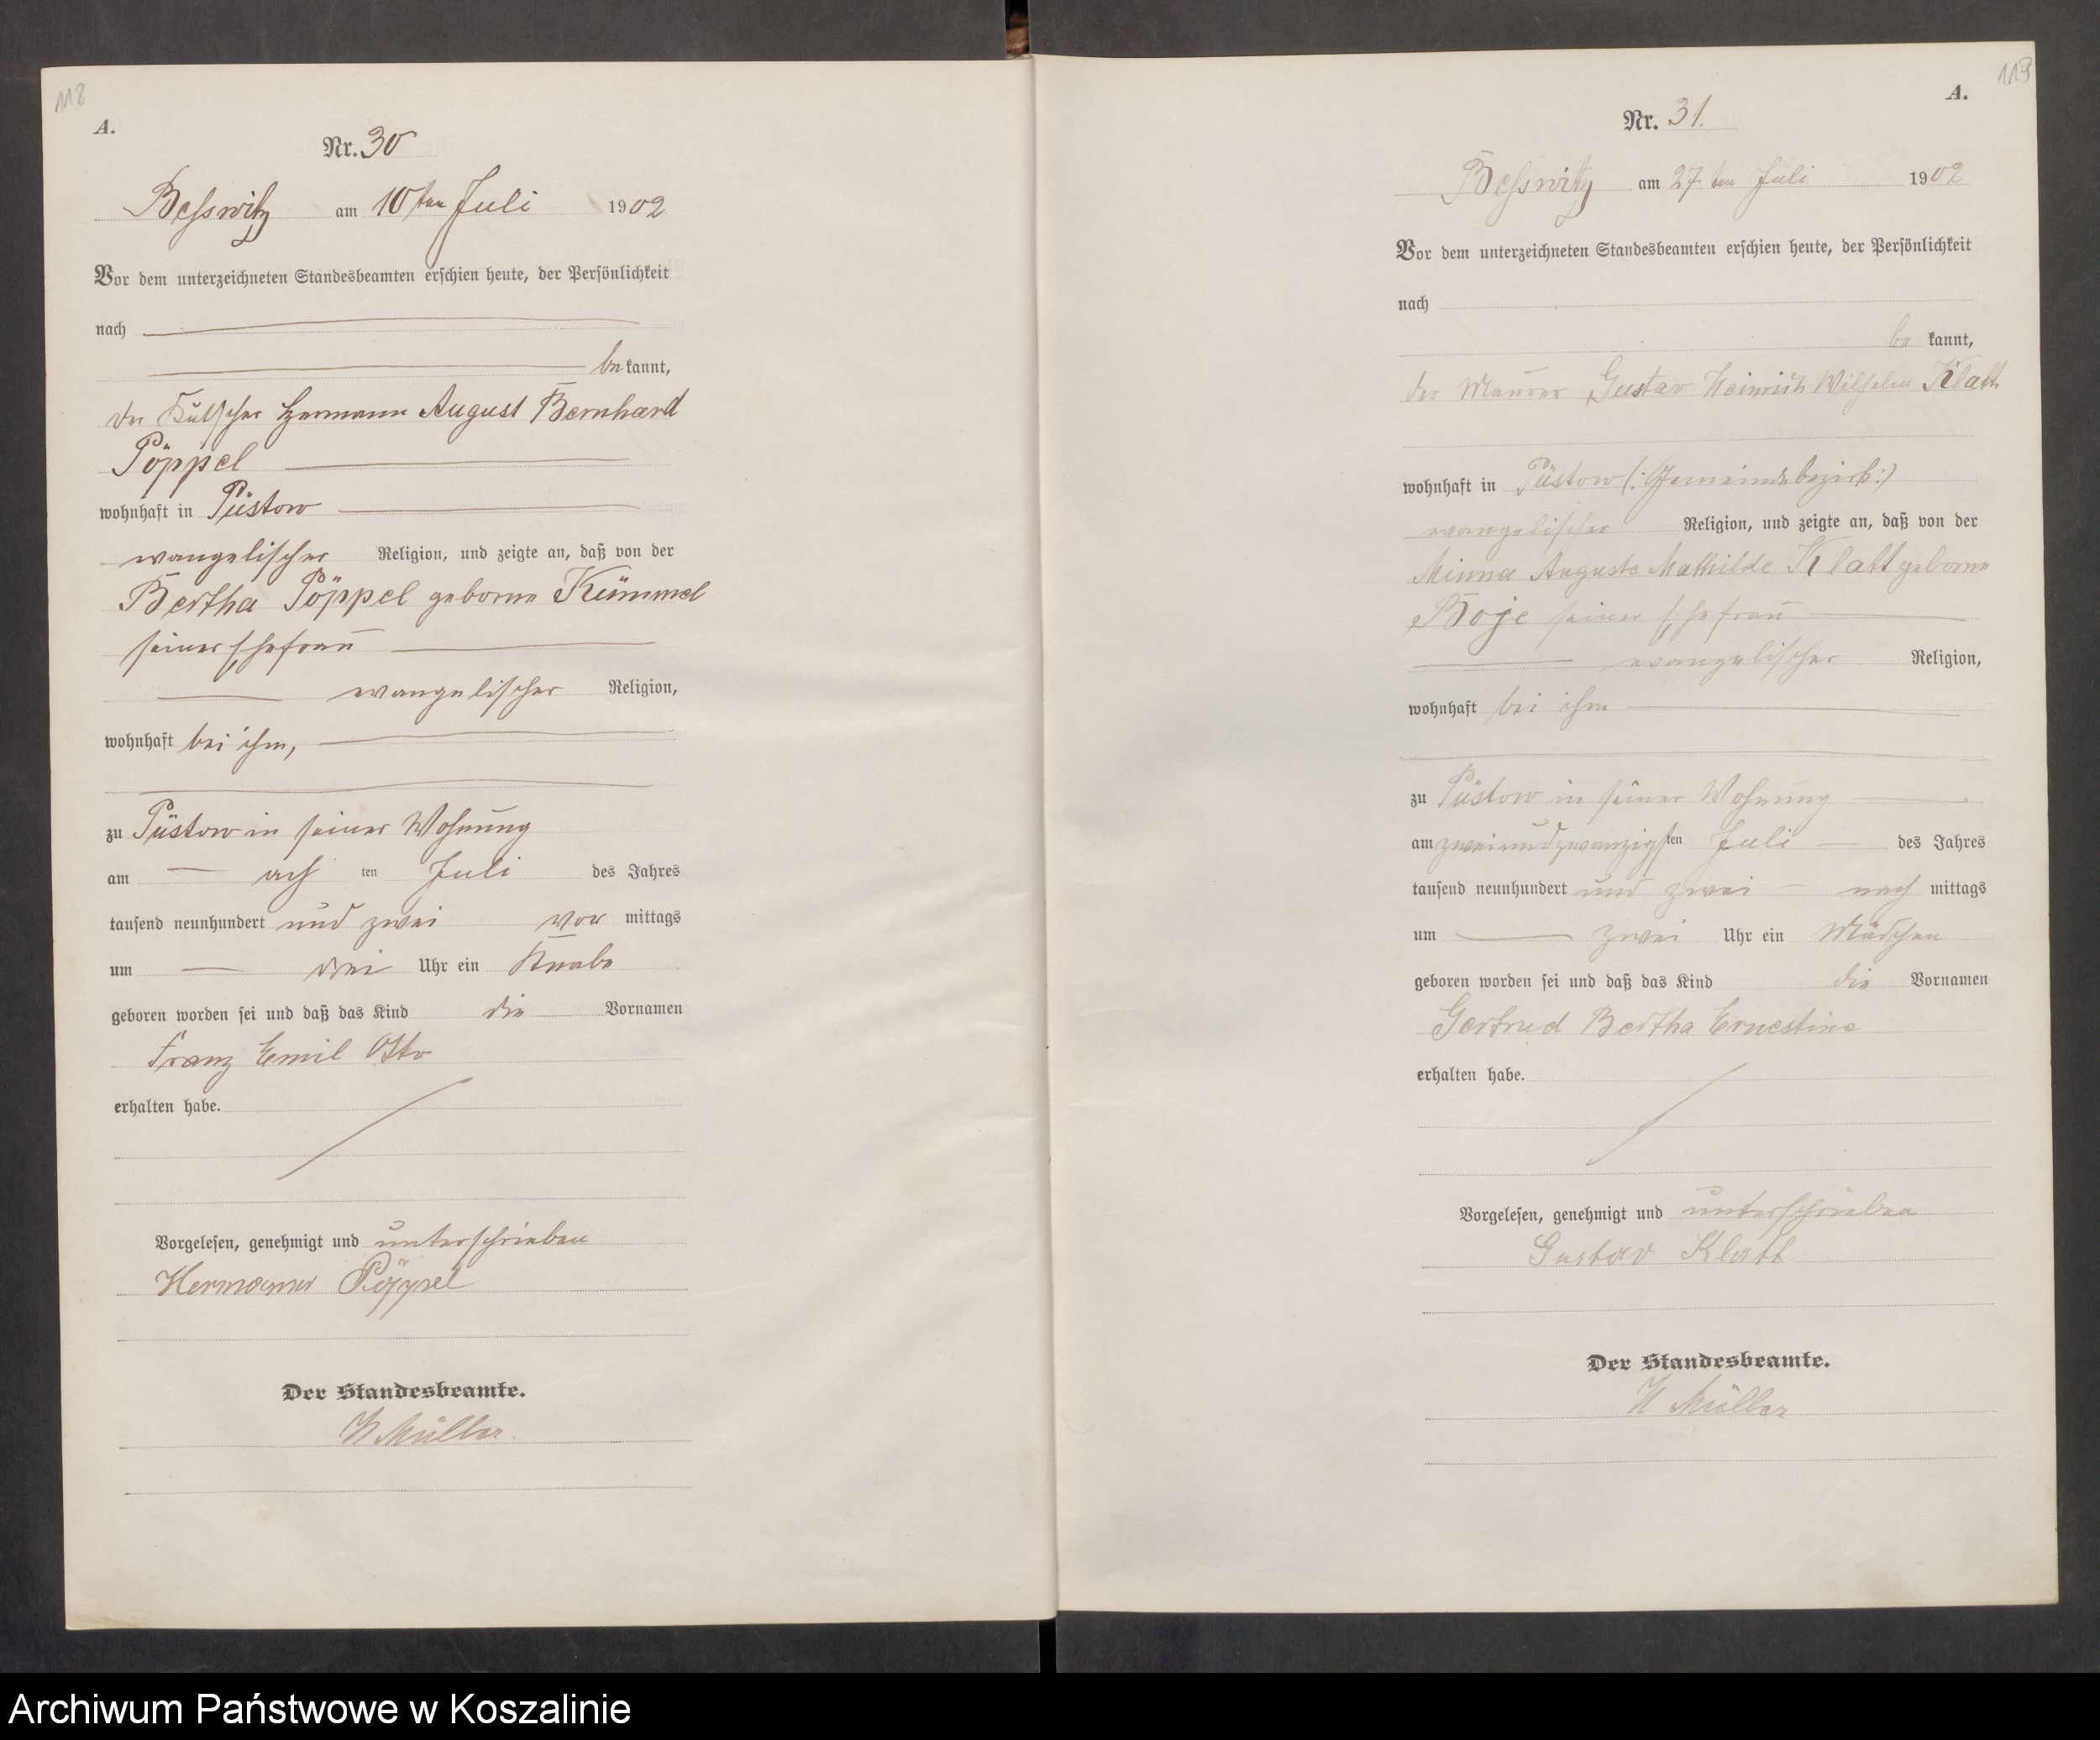 118
A.
Nr. 30
Besswitz am 10ten Juli 1902
Vor dem unterzeichneten Standesbeamten erschien heute, der Persönlichkeit
nach
be kannt,
der Kutscher Hermann August Bernhard
Pöppel
wohnhaft in Püstow
evangelischer Religion, und zeigte an, daß von der
Bertha Pöppel geborne Kümmel
seiner Ehefrau
evangelischer Religion,
wohnhaft bei ihm,
zu Püstow in seiner Wohnung
am ach ten Juli des Jahres
tausend neunhundert und zwei vor mittags
um drei Uhr ein Knabe
geboren worden sei und daß das Kind die Vornamen
Franz Emil Otto
erhalten habe.
Vorgelesen, genehmigt und unterschrieben
Hermann Pöppel
Der Standesbeamte.
H Müller.
119
A.
Nr. 31.
Besswitz am 27ten Juli 1902
Vor dem unterzeichneten Standesbeamten erschien heute, der Persönlichkeit
nach
be kannt,
der Maurer Gustav Heinrich Wilhelm Klatt
wohnhaft in Püstow (: Gemeindebezirk :)
evangelischer Religion, und zeigte an, daß von der
Minna Auguste Mathilde Klatt geborne
Boje seiner Ehefrau
evangelischer Religion,
wohnhaft bei ihm
zu Püstow in seiner Wohnung
am zweiundzwanzigsten Juli des Jahres
tausend neunhundert und zwei nach mittags
um zwei Uhr ein Mädchen
geboren worden sei und daß das Kind die Vornamen
Gertrud Bertha Ernestine
erhalten habe.
Vorgelesen, genehmigt und unterschrieben
Gustav Klatt
Der Standesbeamte.
H Müller
Archiwum Państwowe w Koszalinie